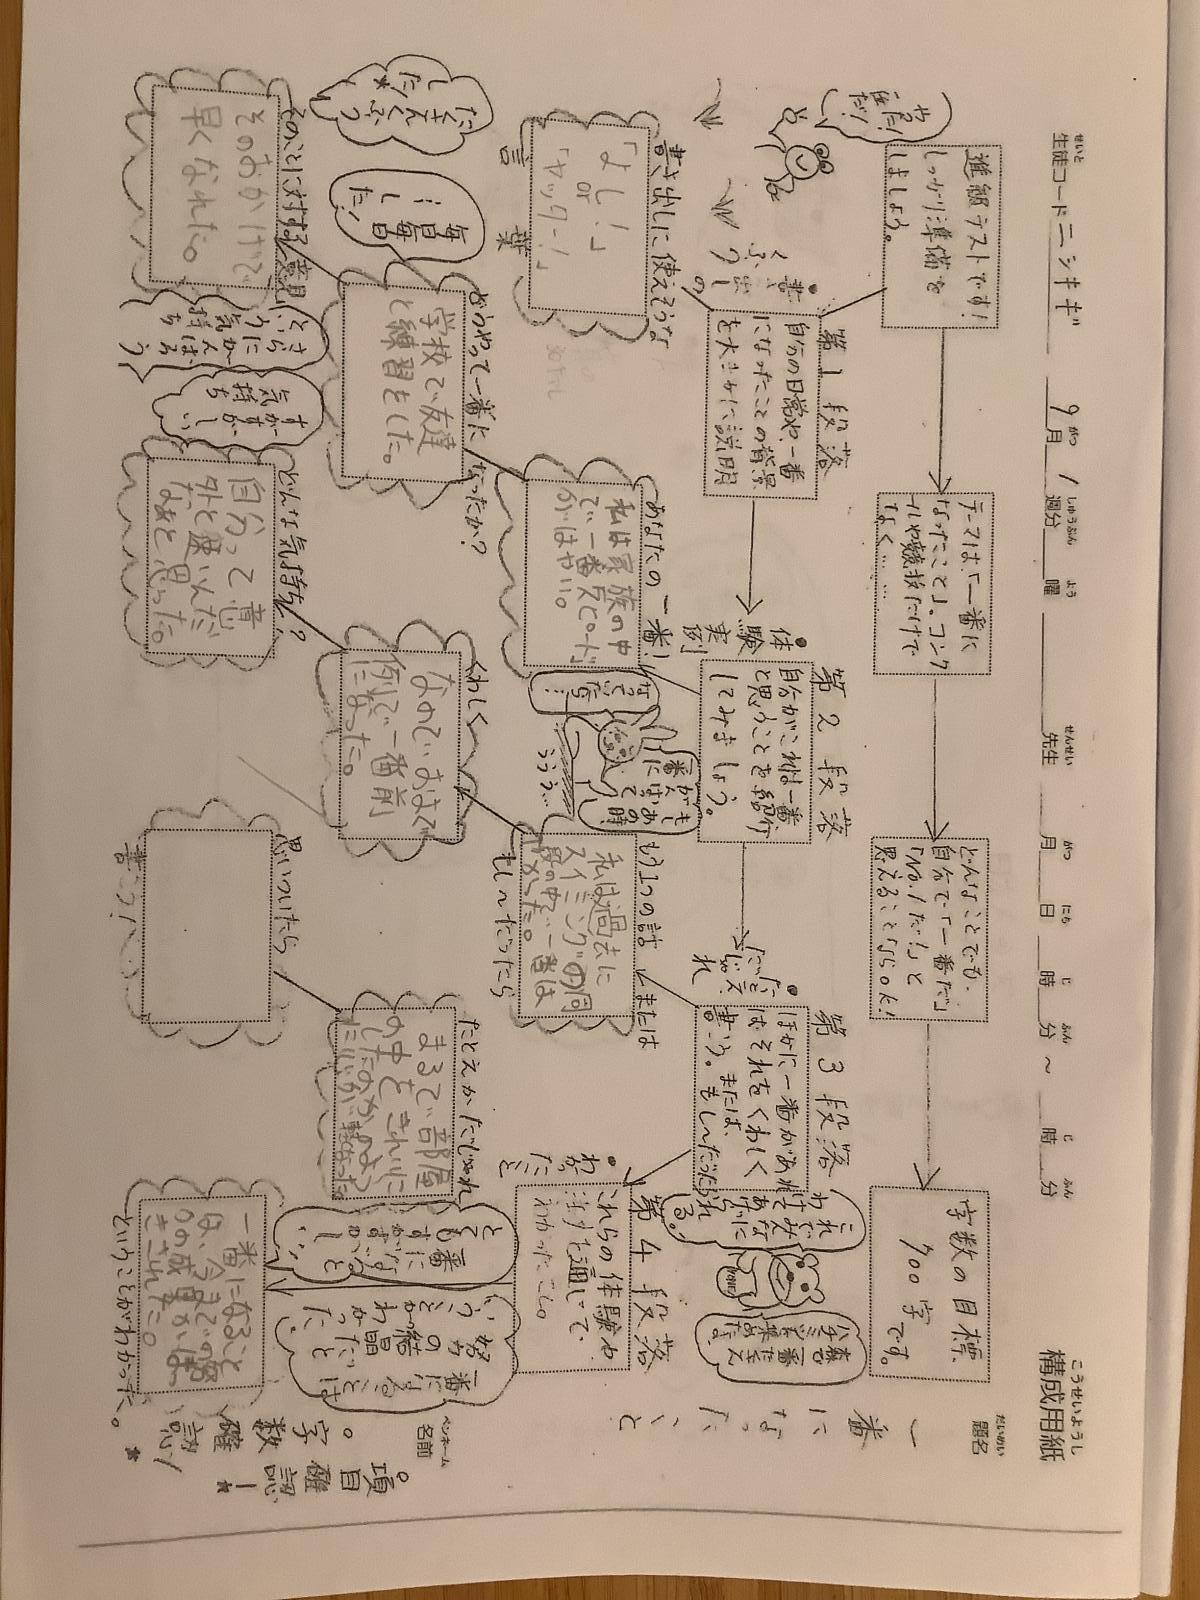 こうせいようし
構成用紙
せいと
生徒コード ニシキギ
9月 1週分 曜
先生
月 日 時 分 ～ 時 分
だいめい
題名
一番になったこと
ペンネーム
名前
進級テストです!
しっかり準備を
しましょう。
テーマは、「一番に
なったこと」。コンク
ールや競技だけで
なく……
どんなことでも、
自分で「一番だ」
「No.1だ!」と
思えることならOK!
字数の目標、
700字です。
第1段落
自分の日常や、一番
になったことの背景
を大まかに説明
・書き出しのくふう
第2段落
自分がこれは一番
と思うことを紹介
してみましょう。
・体験実例
第3段落
ほかに一番があれ
ばそれをくわしく
書こう。または、
もし〜だったら
第4段落
これらの体験や
わかったこと。
・わかったこと
書き出しに使えそうな
言葉
「よし!」
or
「ヤッター!」
あなたの一番!
私は家族の中
で一番
がはやい。
もう1つの話 または
もし〜だったら
私は過去に
スイミングの同
一番は
どうやって一番になったか?
学校で友達
と練習をした。
毎日毎日
…し
た!
くわしく
なので、おはで
例で一番前
になった。
たとえ か だじゃれ
まるで部屋
の中をきれいに
したのかのよう
そのことに対する意見
そのおかげで
早くなれた。
どんな気持ち?
自分って意
外と速いんだ
なぁと思った。
さらに
がんばろう
という気持ち
すがすがしい
気持ち
思いついたら
書こう!
一番になること
は、今までの努
ということがわかった。
一番になると
とても
一番になることは
努力の結晶
だと
いうことがわかった
。字数確認!
。項目確認!